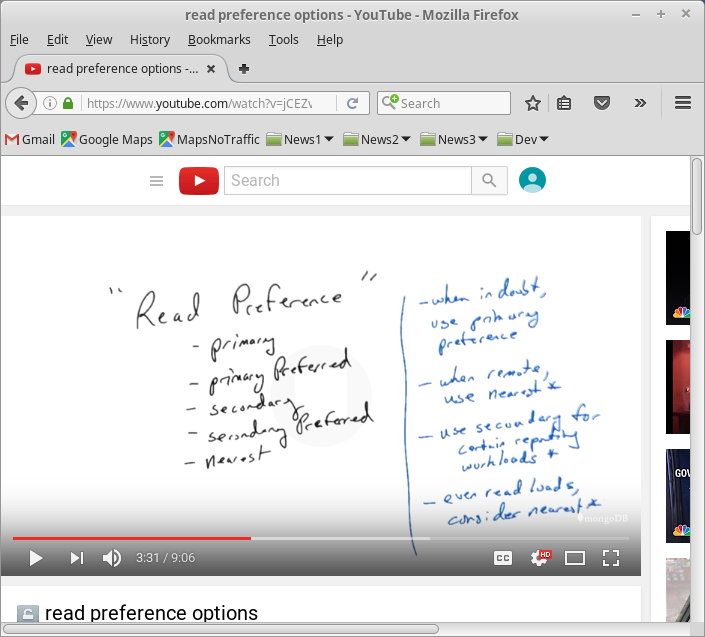 read preference options - YouTube - Mozilla Firefox
File Edit View History Bookmarks Tools Help
read preference options -...
https://www.youtube.com/watch?v=jCEZv
Search
Gmail Google Maps MapsNoTraffic News1 News2 News3 Dev
Search
"Read Preference"
- primary
- primary Preferred
- secondary
- secondary Preferred
- nearest
- when in doubt,
use primary
preference
- when remote,
use nearest *
- use secondary for
certain reporting
workloads *
- even read loads,
consider nearest *
mongoDB
3:31 / 9:06
CC
HD
GOV
read preference options